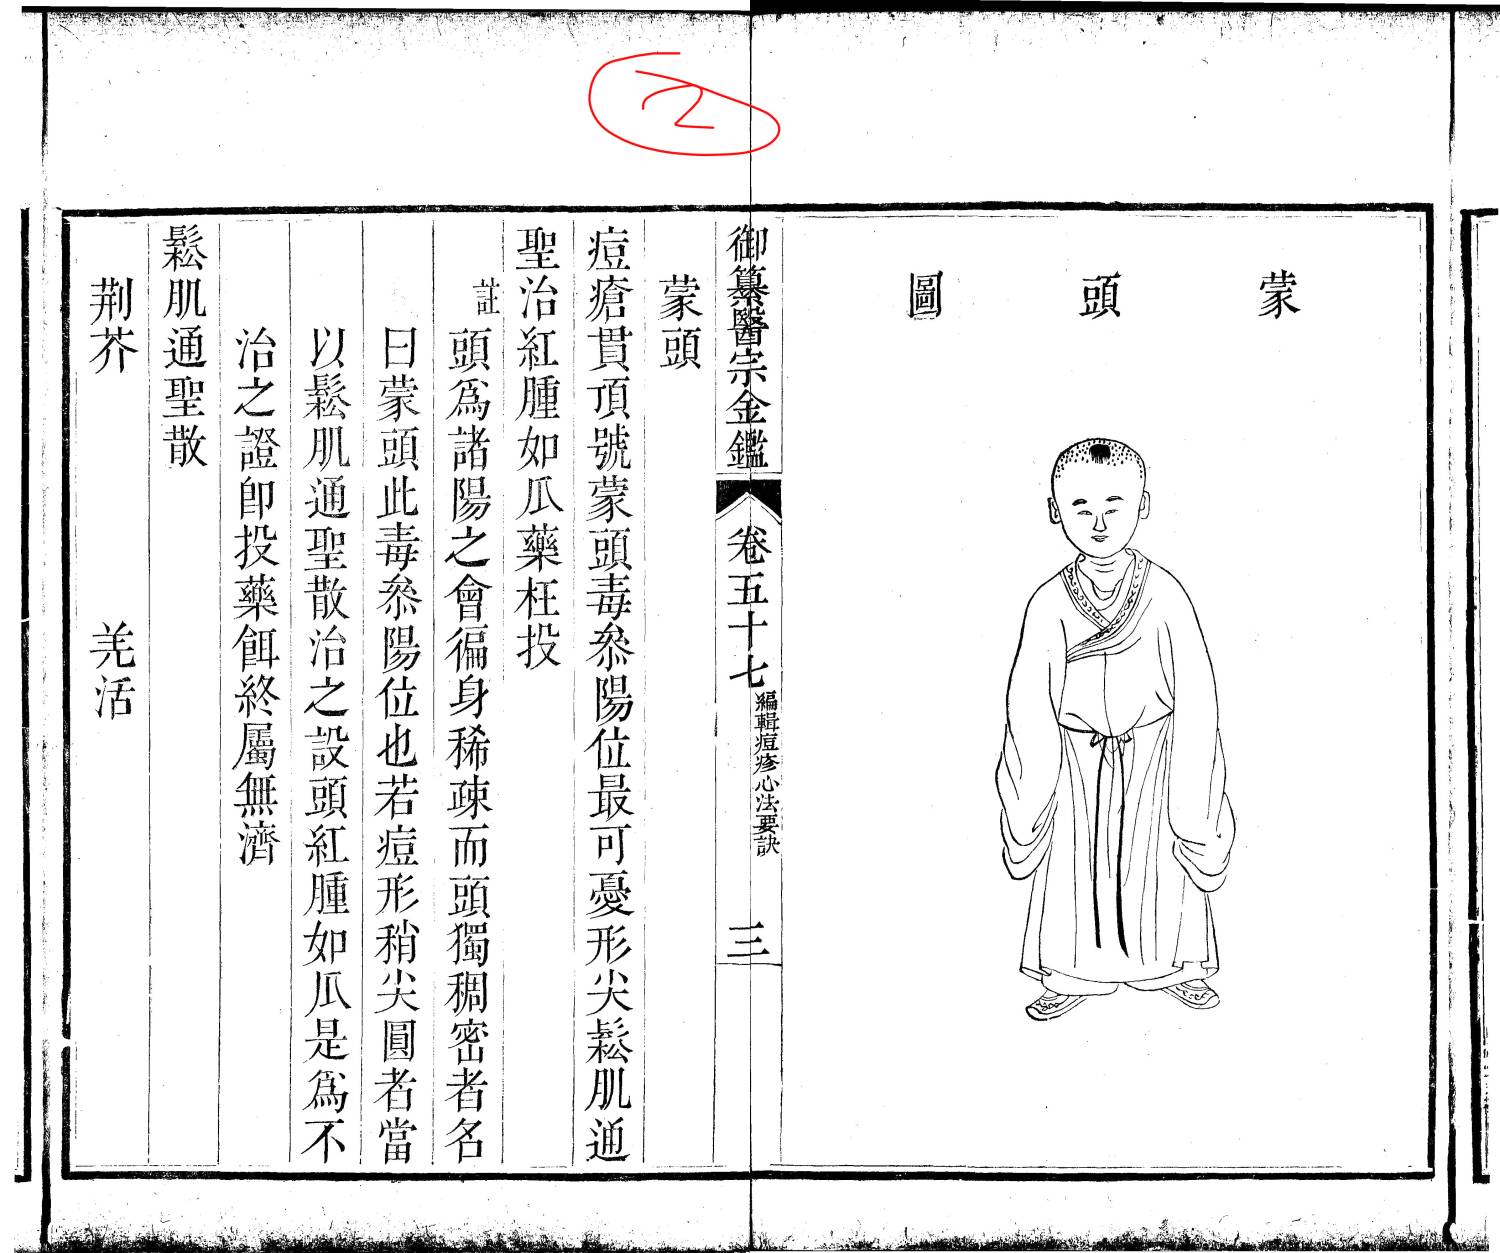 2
蒙頭圖
御纂醫宗金鑑 卷五十七 編輯痘疹心法要訣 三
蒙頭
痘瘡貫頂號蒙頭毒叅陽位最可憂形尖鬆肌通
聖治紅腫如瓜藥枉投
註頭爲諸陽之會徧身稀疎而頭獨稠密者名
曰蒙頭此毒叅陽位也若痘形稍尖圓者當
以鬆肌通聖散治之設頭紅腫如瓜是爲不
治之證卽投藥餌終屬無濟
鬆肌通聖散
荆芥 羌活